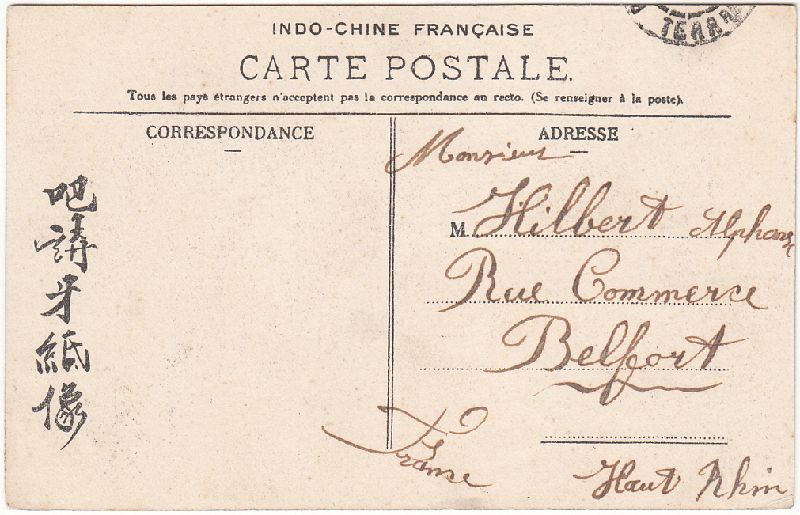 INDO-CHINE FRANÇAISE
CARTE POSTALE.
Tous les pays étrangers n'acceptent pas la correspondance au recto. (Se renseigner à la poste).
CORRESPONDANCE
ADRESSE
吧講牙紙像
Monsieur
M Hilbert Alphonse
Rue Commerce
Belfort
France
Haut Rhin
TERR